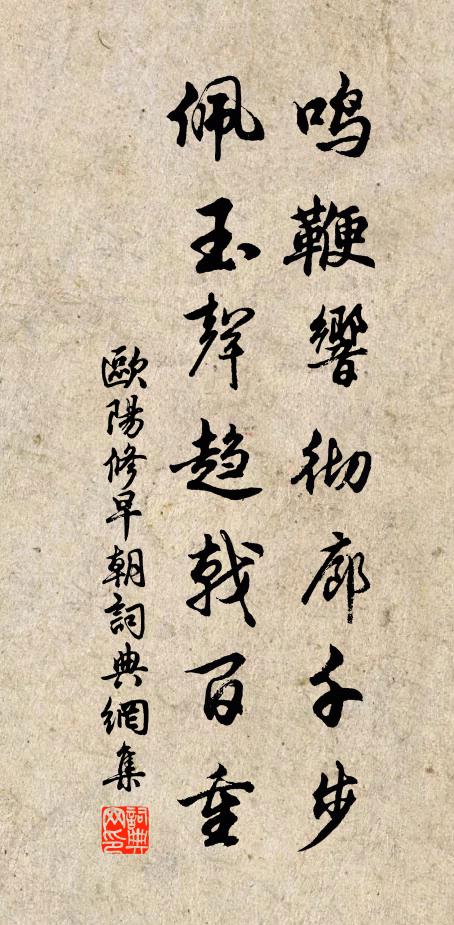 鸣鞭響彻廊千步
佩玉聲趋戟百重
歐陽修早朝詞典網集
詞典网印